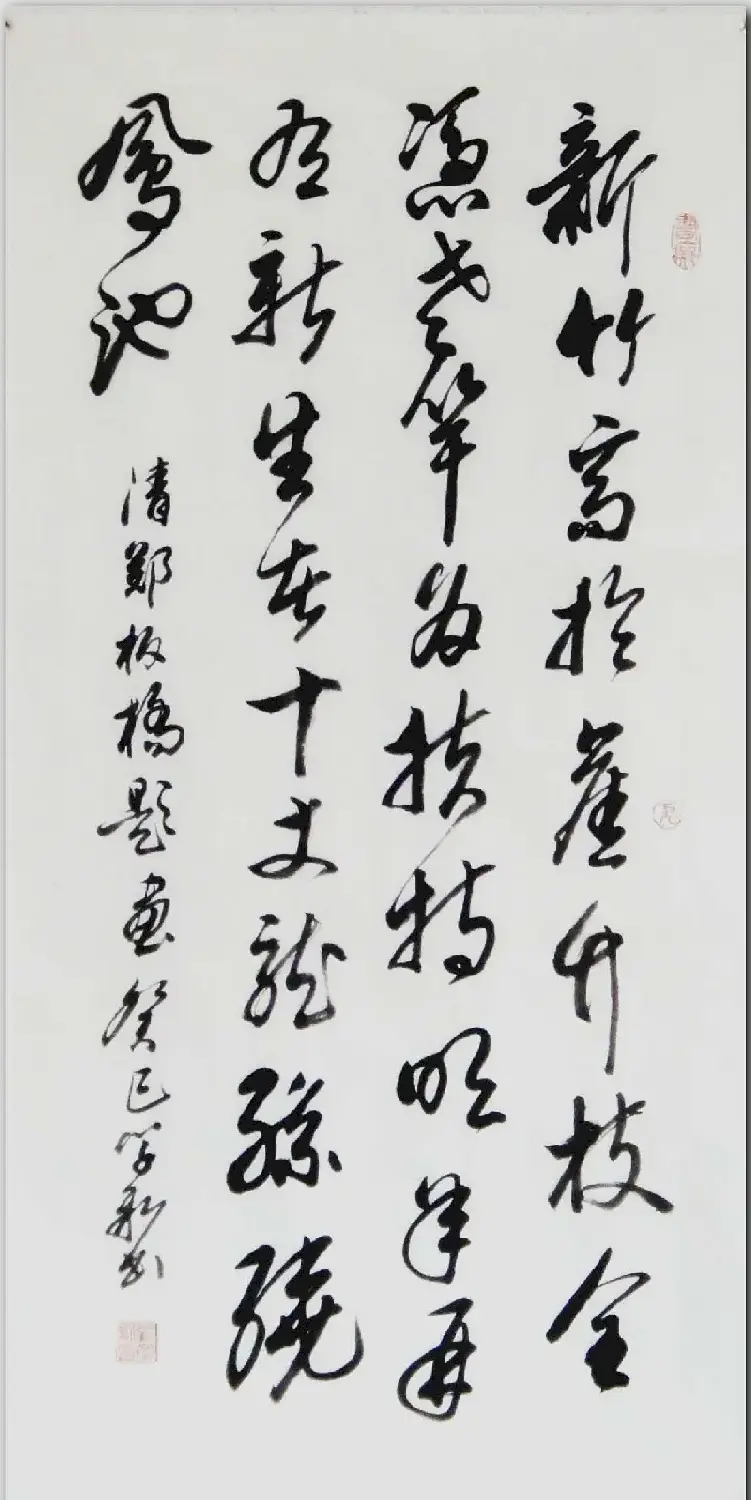 新竹高於舊竹枝全
憑老竿為扶持明年再
有新生者十丈龍孫繞
鳳池
清鄭板橋題畫癸巳